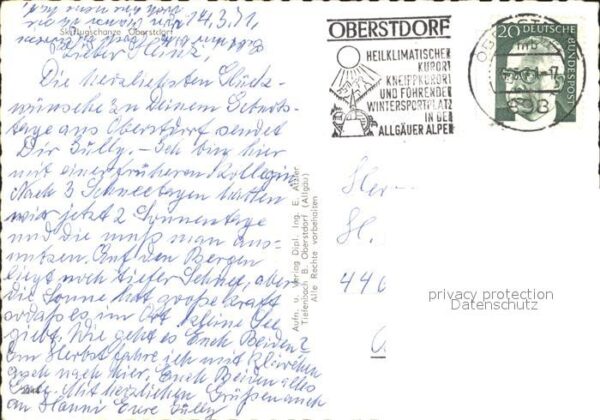 14.3.71,
Skiflugschanze Oberstdorf
Lieber Heinz,
Die herzlichsten Glück-
wünsche zu Deinem Geburts-
tage aus Oberstdorf sendet
Dir Züllÿ. – Ich bin hier
mit einer früheren Kollegin
Nach 3 Schneetagen hatten
wir jetzt 2 Sonnentage
und die muß man aus-
nutzen. Auf den Bergen
liegt noch tiefer Schnee, aber
die Sonne hat große Kraft
sodaß es im Ort kleine See
giebt. Wie geht es Euch Beiden?
Im Herbst fahre ich mit
auch nach hier. Euch Beiden alles
Gute. Mit herzlichen Grüßen auch
an Hanni Eure Züllÿ
Aufn. u. Verlag Dipl. Ing. E. Atzler
Tiefenbach B. Oberstdorf (Allgäu)
Alle Rechte vorbehalten
OBERSTDORF
HEILKLIMATISCHER
KURORT
KNEIPPKURORT
UND FÜHRENDER
WINTERSPORTPLATZ
IN DEN
ALLGÄUER ALPEN
20 DEUTSCHE
BUNDESPOST
Her-
H.
440
privacy protection
Datenschutz